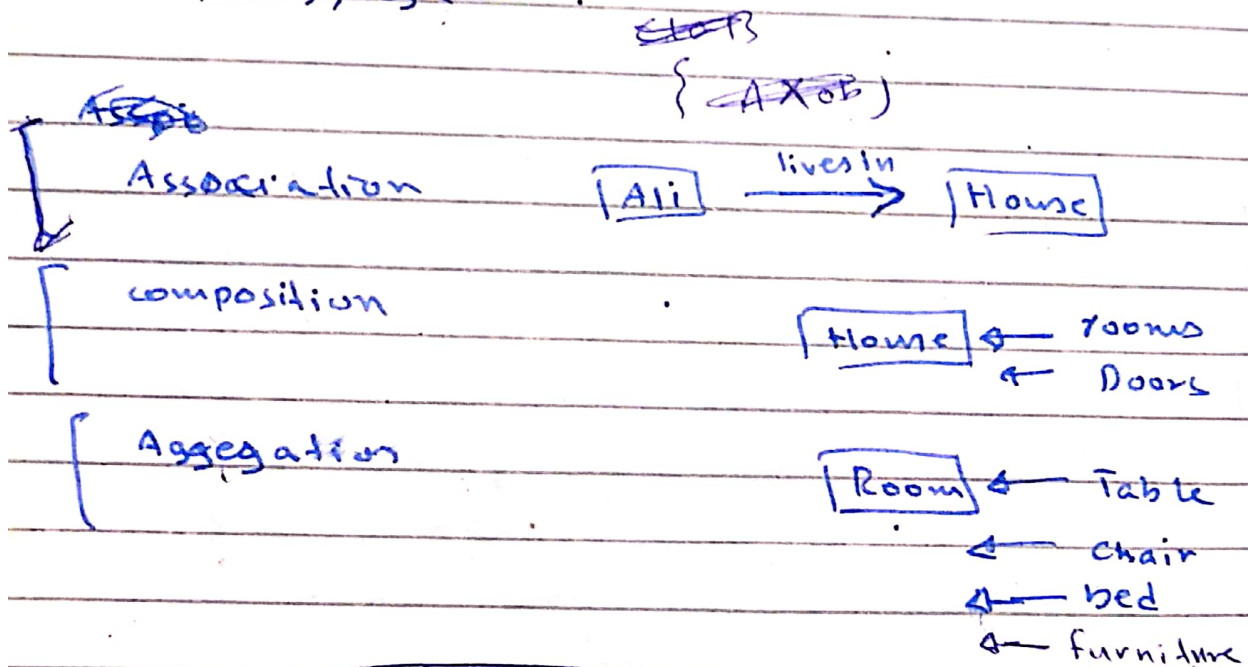 Association Ali lives in House
composition House rooms
Doors
Aggegation Room Table
chair
bed
furniture